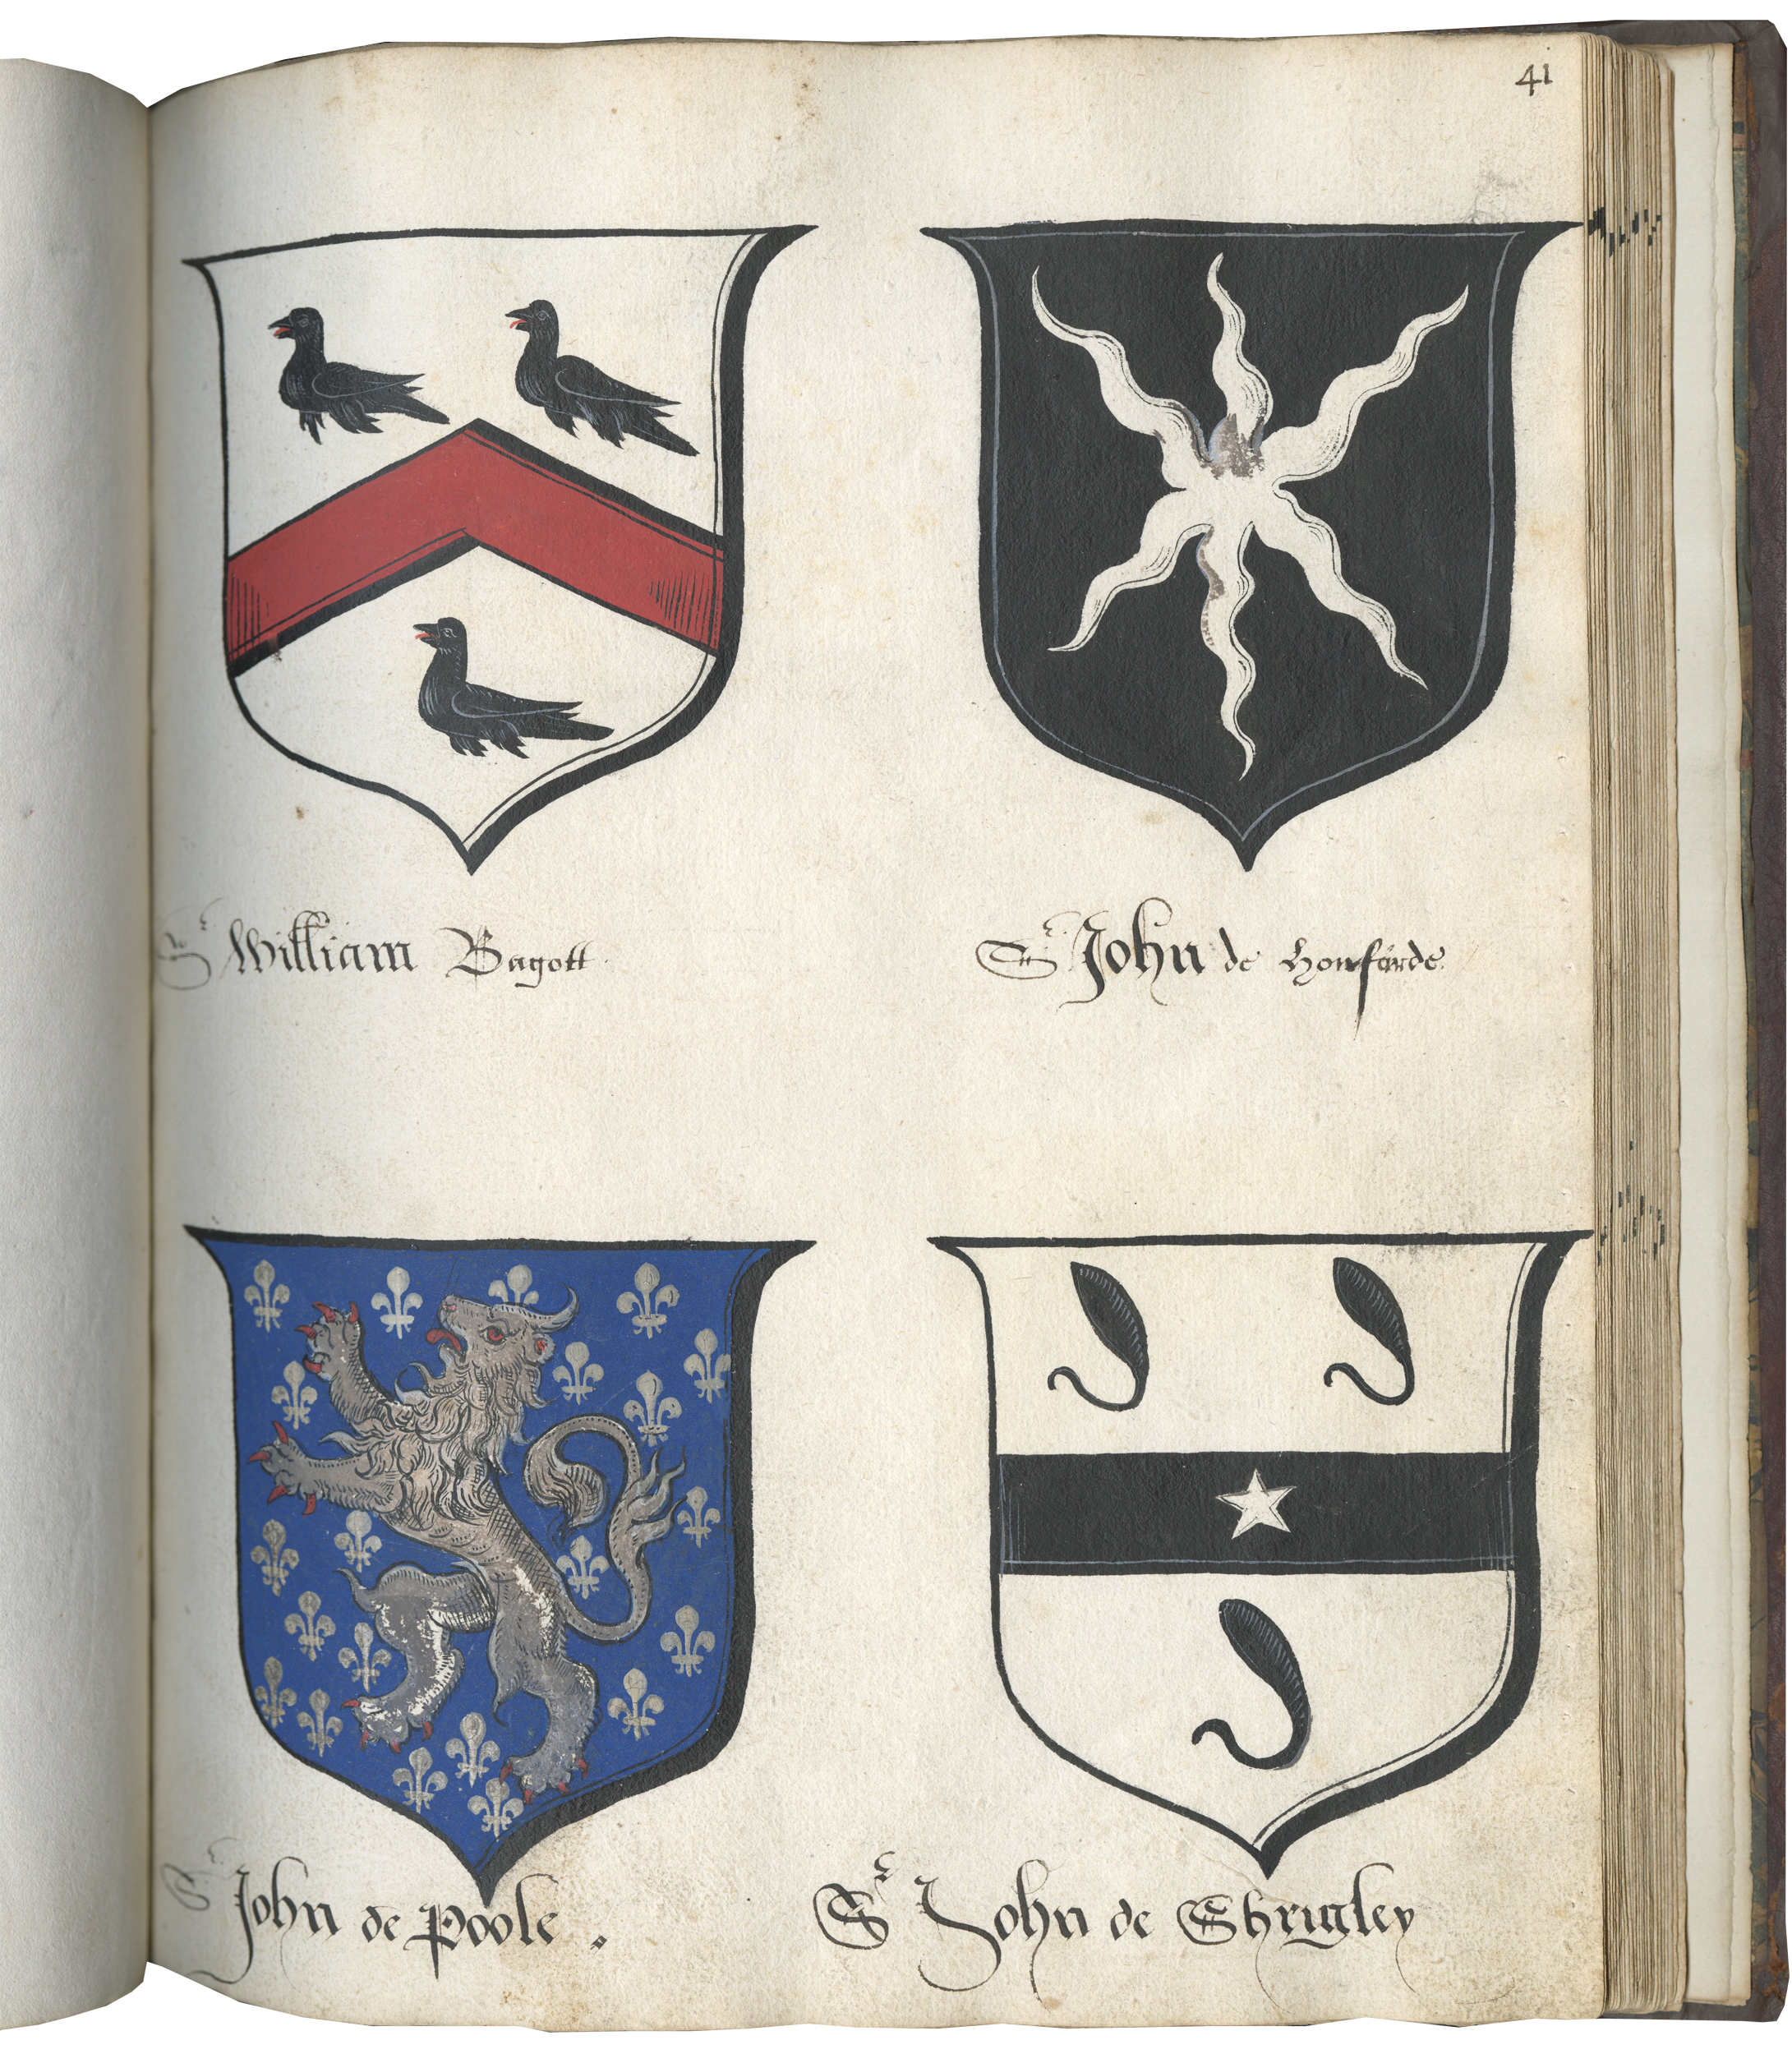 41
Sr William Bagott.
Sr John de Honfarde.
Sr John de Poole.
Sr John de Shrigley